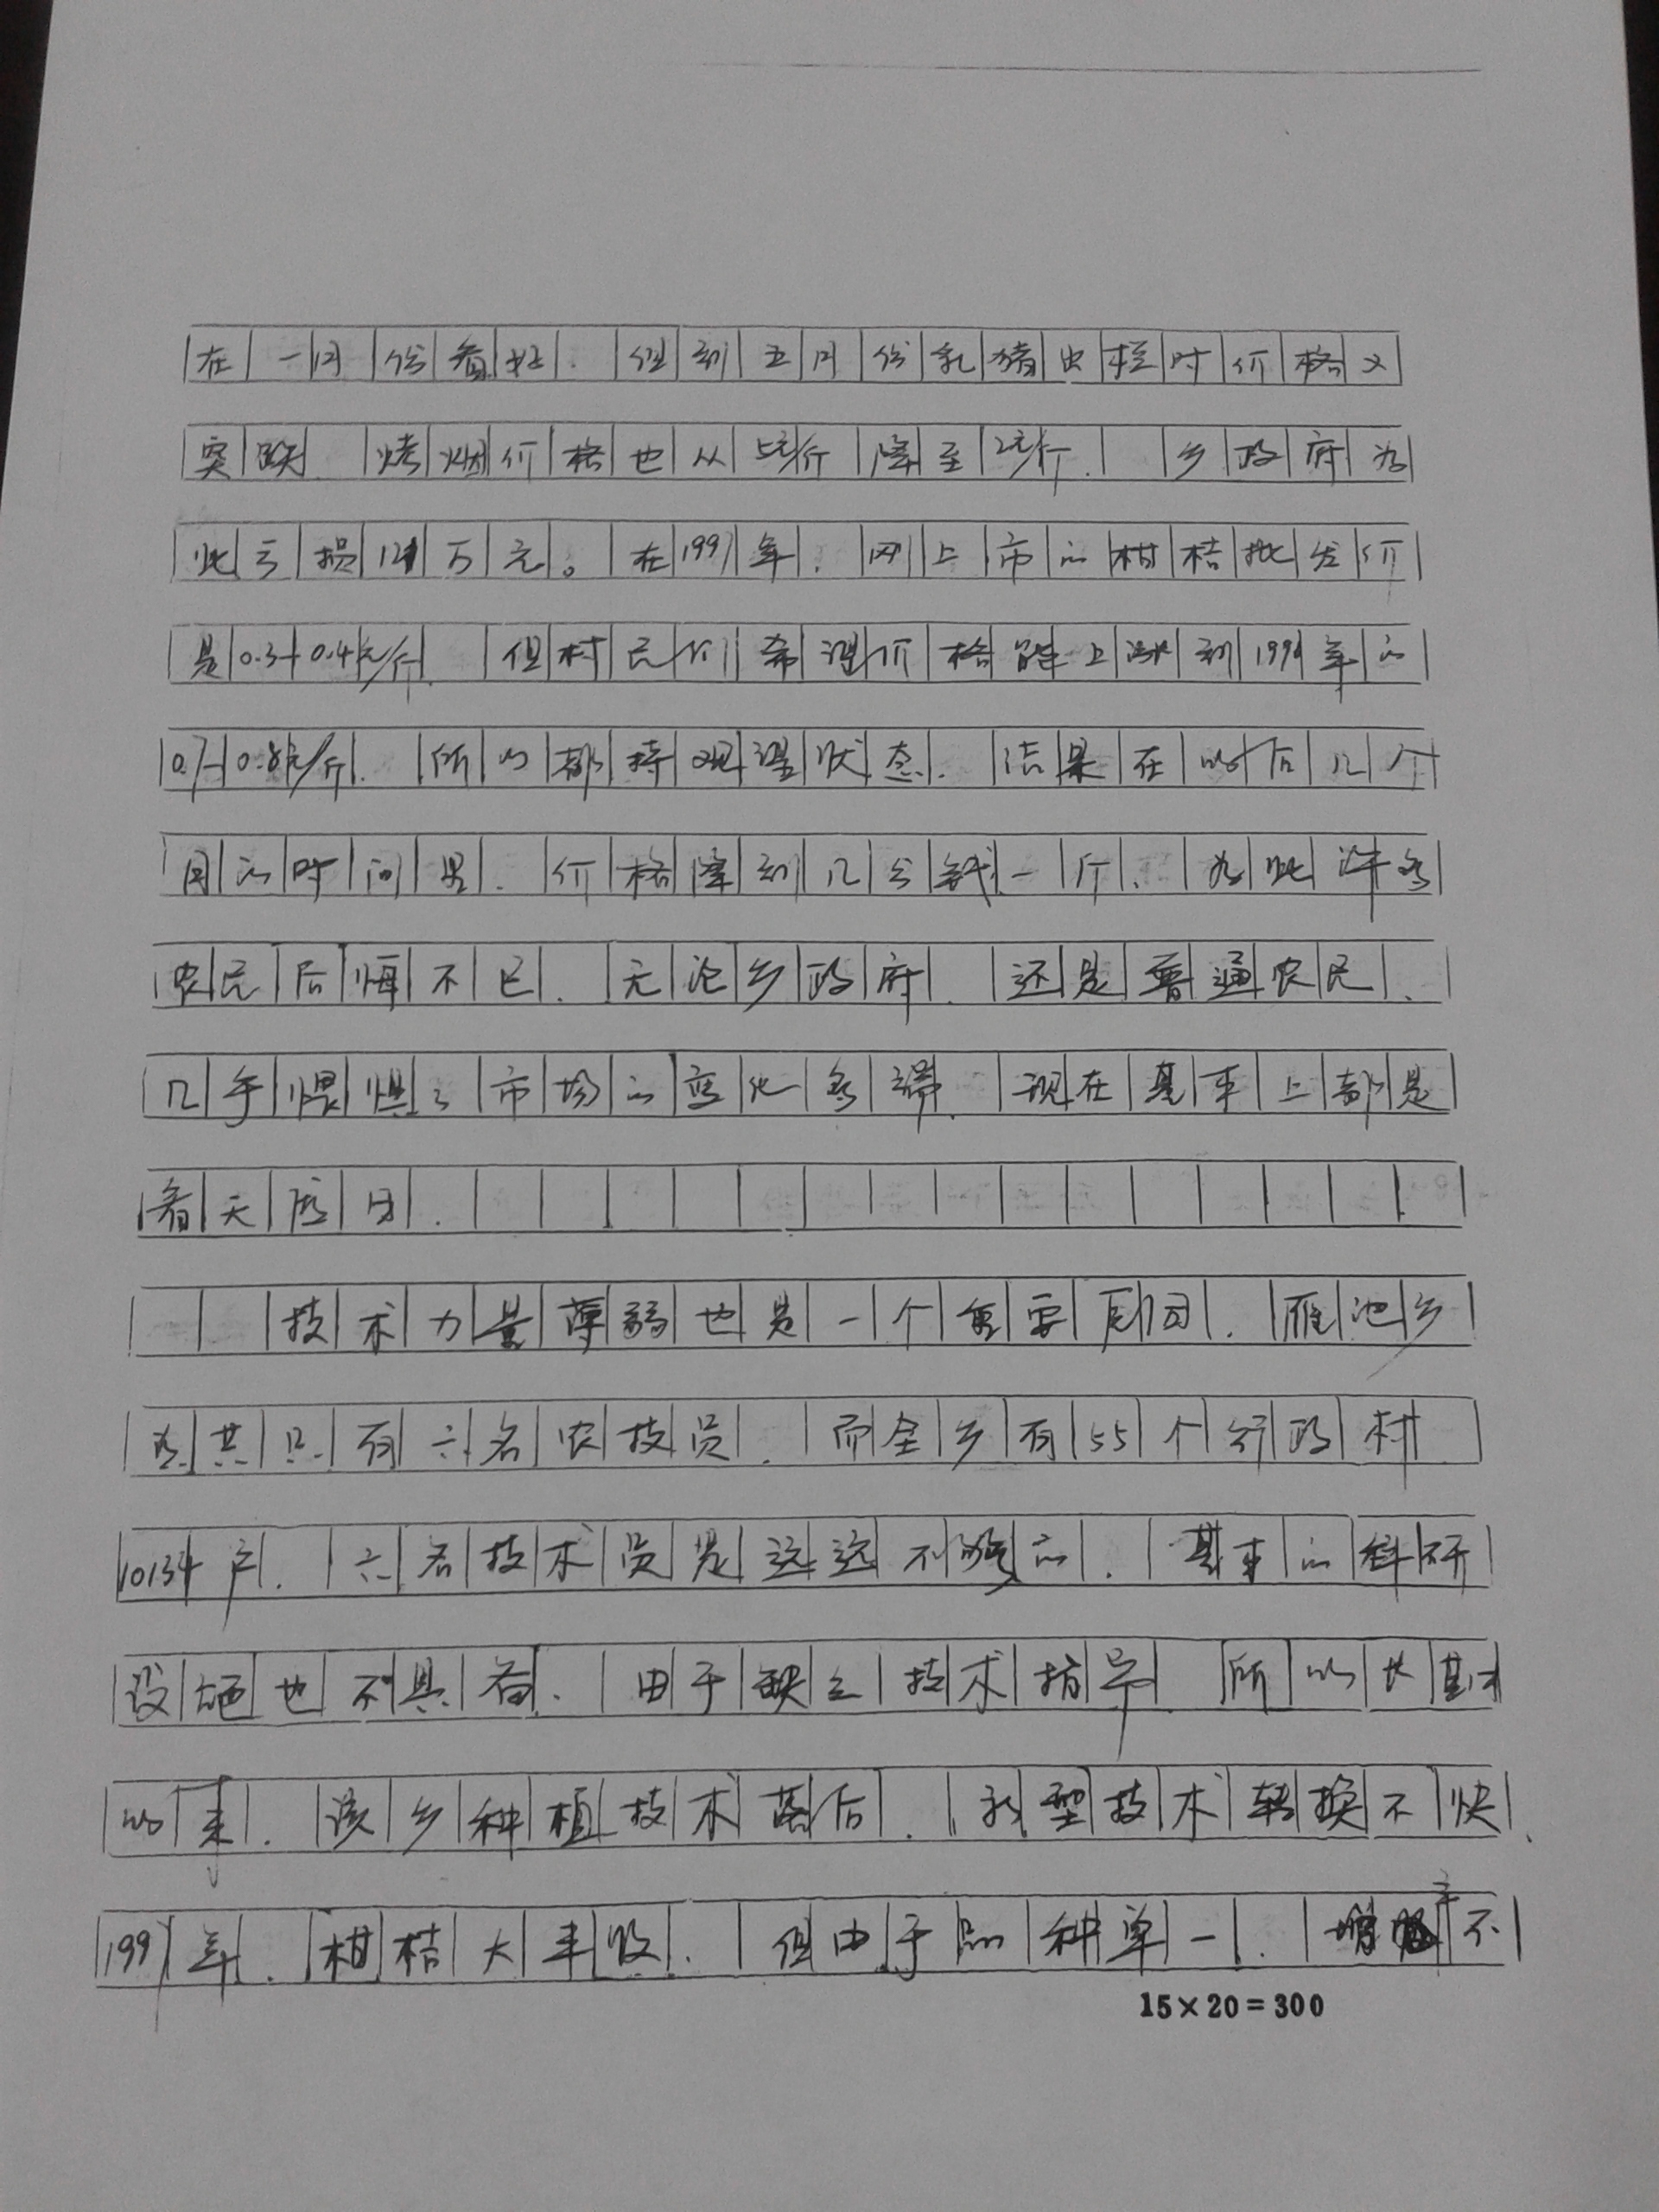 在一月份看好.但到五月份乳猪出栏时价格又
突跌.烤烟价格也从5元/斤降至2元/斤.乡政府为
此亏损121万元。在1997年.刚上市的柑桔批发价
是0.3-0.4元/斤.但村民们希望价格能上涨到1996年的
0.7-0.8元/斤.所以都持观望状态.结果在以后几个
月的时间里.价格降到几分钱一斤.为此许多
农民后悔不已.无论乡政府.还是普通农民.
几乎惧怕了市场的变化多端.现在基本上都是
看天度日.
技术力量薄弱也是一个重要原因.雁池乡
总共只有六名农技员.而全乡有55个行政村
10134户.六名技术员是远远不够的.基本的科研
设施也不具备.由于缺乏技术指导.所以长期
以来.该乡种植技术落后.新型技术转换不快.
1997年.柑桔大丰收.但由于品种单一.增产不
15×20=300